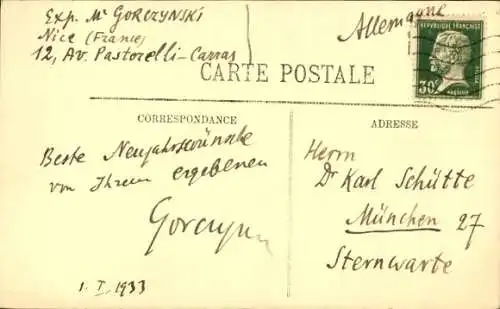 Exp. Mr GORCZYNSKI
Nice (France)
12, Av. Pastorelli-Carras
Allemagne
REPUBLIQUE FRANÇAISE
30c
CARTE POSTALE
CORRESPONDANCE
ADRESSE
Beste Neujahrswünsche
von Ihrem ergebenen
Gorczynski
1. I. 1933
Herrn
Dr Karl Schütte
München 27
Sternwarte